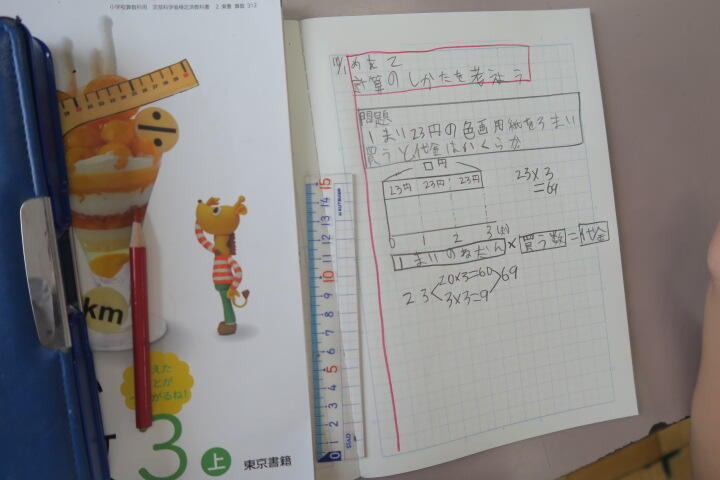 小学校算数科用 文部科学省検定済教科書 2 東書 算数 312
km
3
上
東京書籍
めあて
計算のしかたを考えよう
問題
1まい23円の色画用紙を3まい
買うと代金はいくらか
□円
23円 23円 23円
23×3
=69
0 1 2 3(まい)
1まいのねだん×買う数=代金
20×3=60
23 69
3×3=9
0 1 2 3 4 5 6 7 8 9 10 11 12 13 14 15